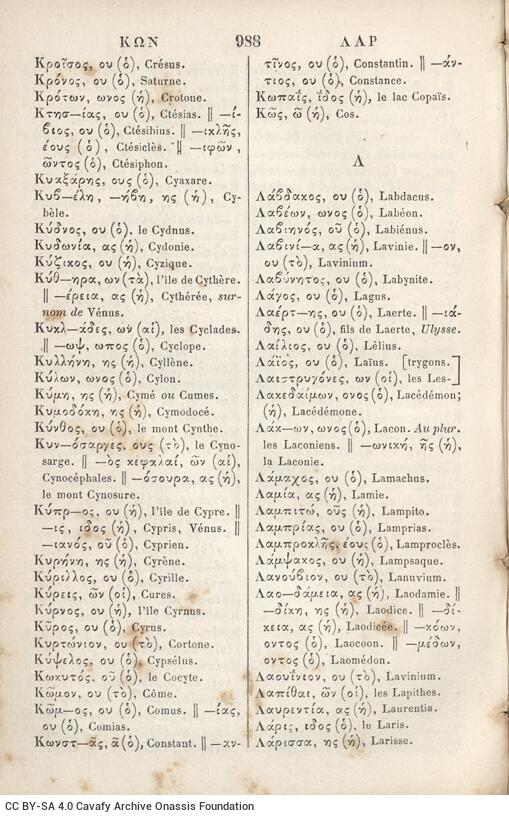 ΚΩΝ 988 ΛΑΡ
Κροῖσος, ου (ὁ), Crésus.
Κρόνος, ου (ὁ), Saturne.
Κρότων, ωνος (ἡ), Crotone.
Κτησ—ίας, ου (ὁ), Ctésias. || —ί-
βιος, ου (ὁ), Ctésibius. || —ικλῆς,
έους (ὁ), Ctésiclès. || —ιφῶν,
ῶντος (ὁ), Ctésiphon.
Κυαξάρης, ους (ὁ), Cyaxare.
Κυβ—έλη, —ήβη, ης (ἡ), Cy-
bèle.
Κύδνος, ου (ὁ), le Cydnus.
Κυδωνία, ας (ἡ), Cydonie.
Κύζικος, ου (ἡ), Cyzique.
Κύθ—ηρα, ων (τὰ), l'île de Cythère.
|| —έρεια, ας (ἡ), Cythérée, sur-
nom de Vénus.
Κυκλ—άδες, ων (αἱ), les Cyclades.
|| —ωψ, ωπος (ὁ), Cyclope.
Κυλλήνη, ης (ἡ), Cyllène.
Κύλων, ωνος (ὁ), Cylon.
Κύμη, ης (ἡ), Cymé ou Cumes.
Κυμοδόκη, ης (ἡ), Cymodocé.
Κύνθος, ου (ὁ), le mont Cynthe.
Κυν—όσαργες, ους (τὸ), le Cyno-
sarge. || —ὸς κεφαλαί, ῶν (αἱ),
Cynocéphales. || —όσουρα, ας (ἡ),
le mont Cynosure.
Κύπρ—ος, ου (ἡ), l'île de Cypre. ||
—ις, ιδος (ἡ), Cypris, Vénus. ||
—ιανός, οῦ (ὁ), Cyprien.
Κυρήνη, ης (ἡ), Cyrène.
Κύριλλος, ου (ὁ), Cyrille.
Κύρεις, ῶν (οἱ), Cures.
Κύρνος, ου (ἡ), l'île Cyrnus.
Κῦρος, ου (ὁ), Cyrus.
Κυρτώνιον, ου (τὸ), Cortone.
Κύψελος, ου (ὁ), Cypsélus.
Κωκυτός, οῦ (ὁ), le Cocyte.
Κῶμον, ου (τὸ), Côme.
Κῶμ—ος, ου (ὁ), Comus. || —ίας,
ου (ὁ), Comias.
Κωνστ—ᾶς, ᾶ (ὁ), Constant. || —αν-
τῖνος, ου (ὁ), Constantin. || —άν-
τιος, ου (ὁ), Constance.
Κωπαΐς, ΐδος (ἡ), le lac Copaïs.
Κῶς, ῶ (ἡ), Cos.
Λ
Λάβδακος, ου (ὁ), Labdacus.
Λαβέων, ωνος (ὁ), Labéon.
Λαβιηνός, οῦ (ὁ), Labiénus.
Λαβινί—α, ας (ἡ), Lavinie. || —ον,
ου (τὸ), Lavinium.
Λαβύνητος, ου (ὁ), Labynite.
Λάγος, ου (ὁ), Lagus.
Λαέρτ—ης, ου (ὁ), Laerte. || —ιά-
δης, ου (ὁ), fils de Laerte, Ulysse.
Λαίλιος, ου (ὁ), Lélius.
Λάϊος, ου (ὁ), Laïus. [trygons.]
Λαιστρυγόνες, ων (οἱ), les Les-
Λακεδαίμων, ονος (ὁ), Lacédémon;
(ἡ), Lacédémone.
Λάκ—ων, ωνος (ὁ), Lacon. Au plur.
les Laconiens. || —ωνική, ῆς (ἡ),
la Laconie.
Λάμαχος, ου (ὁ), Lamachus.
Λαμία, ας (ἡ), Lamie.
Λαμπιτώ, οῦς (ἡ), Lampito.
Λαμπρίας, ου (ὁ), Lamprias.
Λαμπροκλῆς, έους (ὁ), Lamproclès.
Λάμψακος, ου (ἡ), Lampsaque.
Λανούβιον, ου (τὸ), Lanuvium.
Λαο—δάμεια, ας (ἡ), Laodamie. ||
—δίκη, ης (ἡ), Laodice. || —δί-
κεια, ας (ἡ), Laodicée. || —κόων,
οντος (ὁ), Laocoon. || —μέδων,
οντος (ὁ), Laomédon.
Λαουΐνιον, ου (τὸ), Lavinium.
Λαπίθαι, ῶν (οἱ), les Lapithes.
Λαυρεντία, ας (ἡ), Laurentia.
Λάρις, ιδος (ὁ), le Laris.
Λάρισσα, ης (ἡ), Larisse.
CC BY-SA 4.0 Cavafy Archive Onassis Foundation